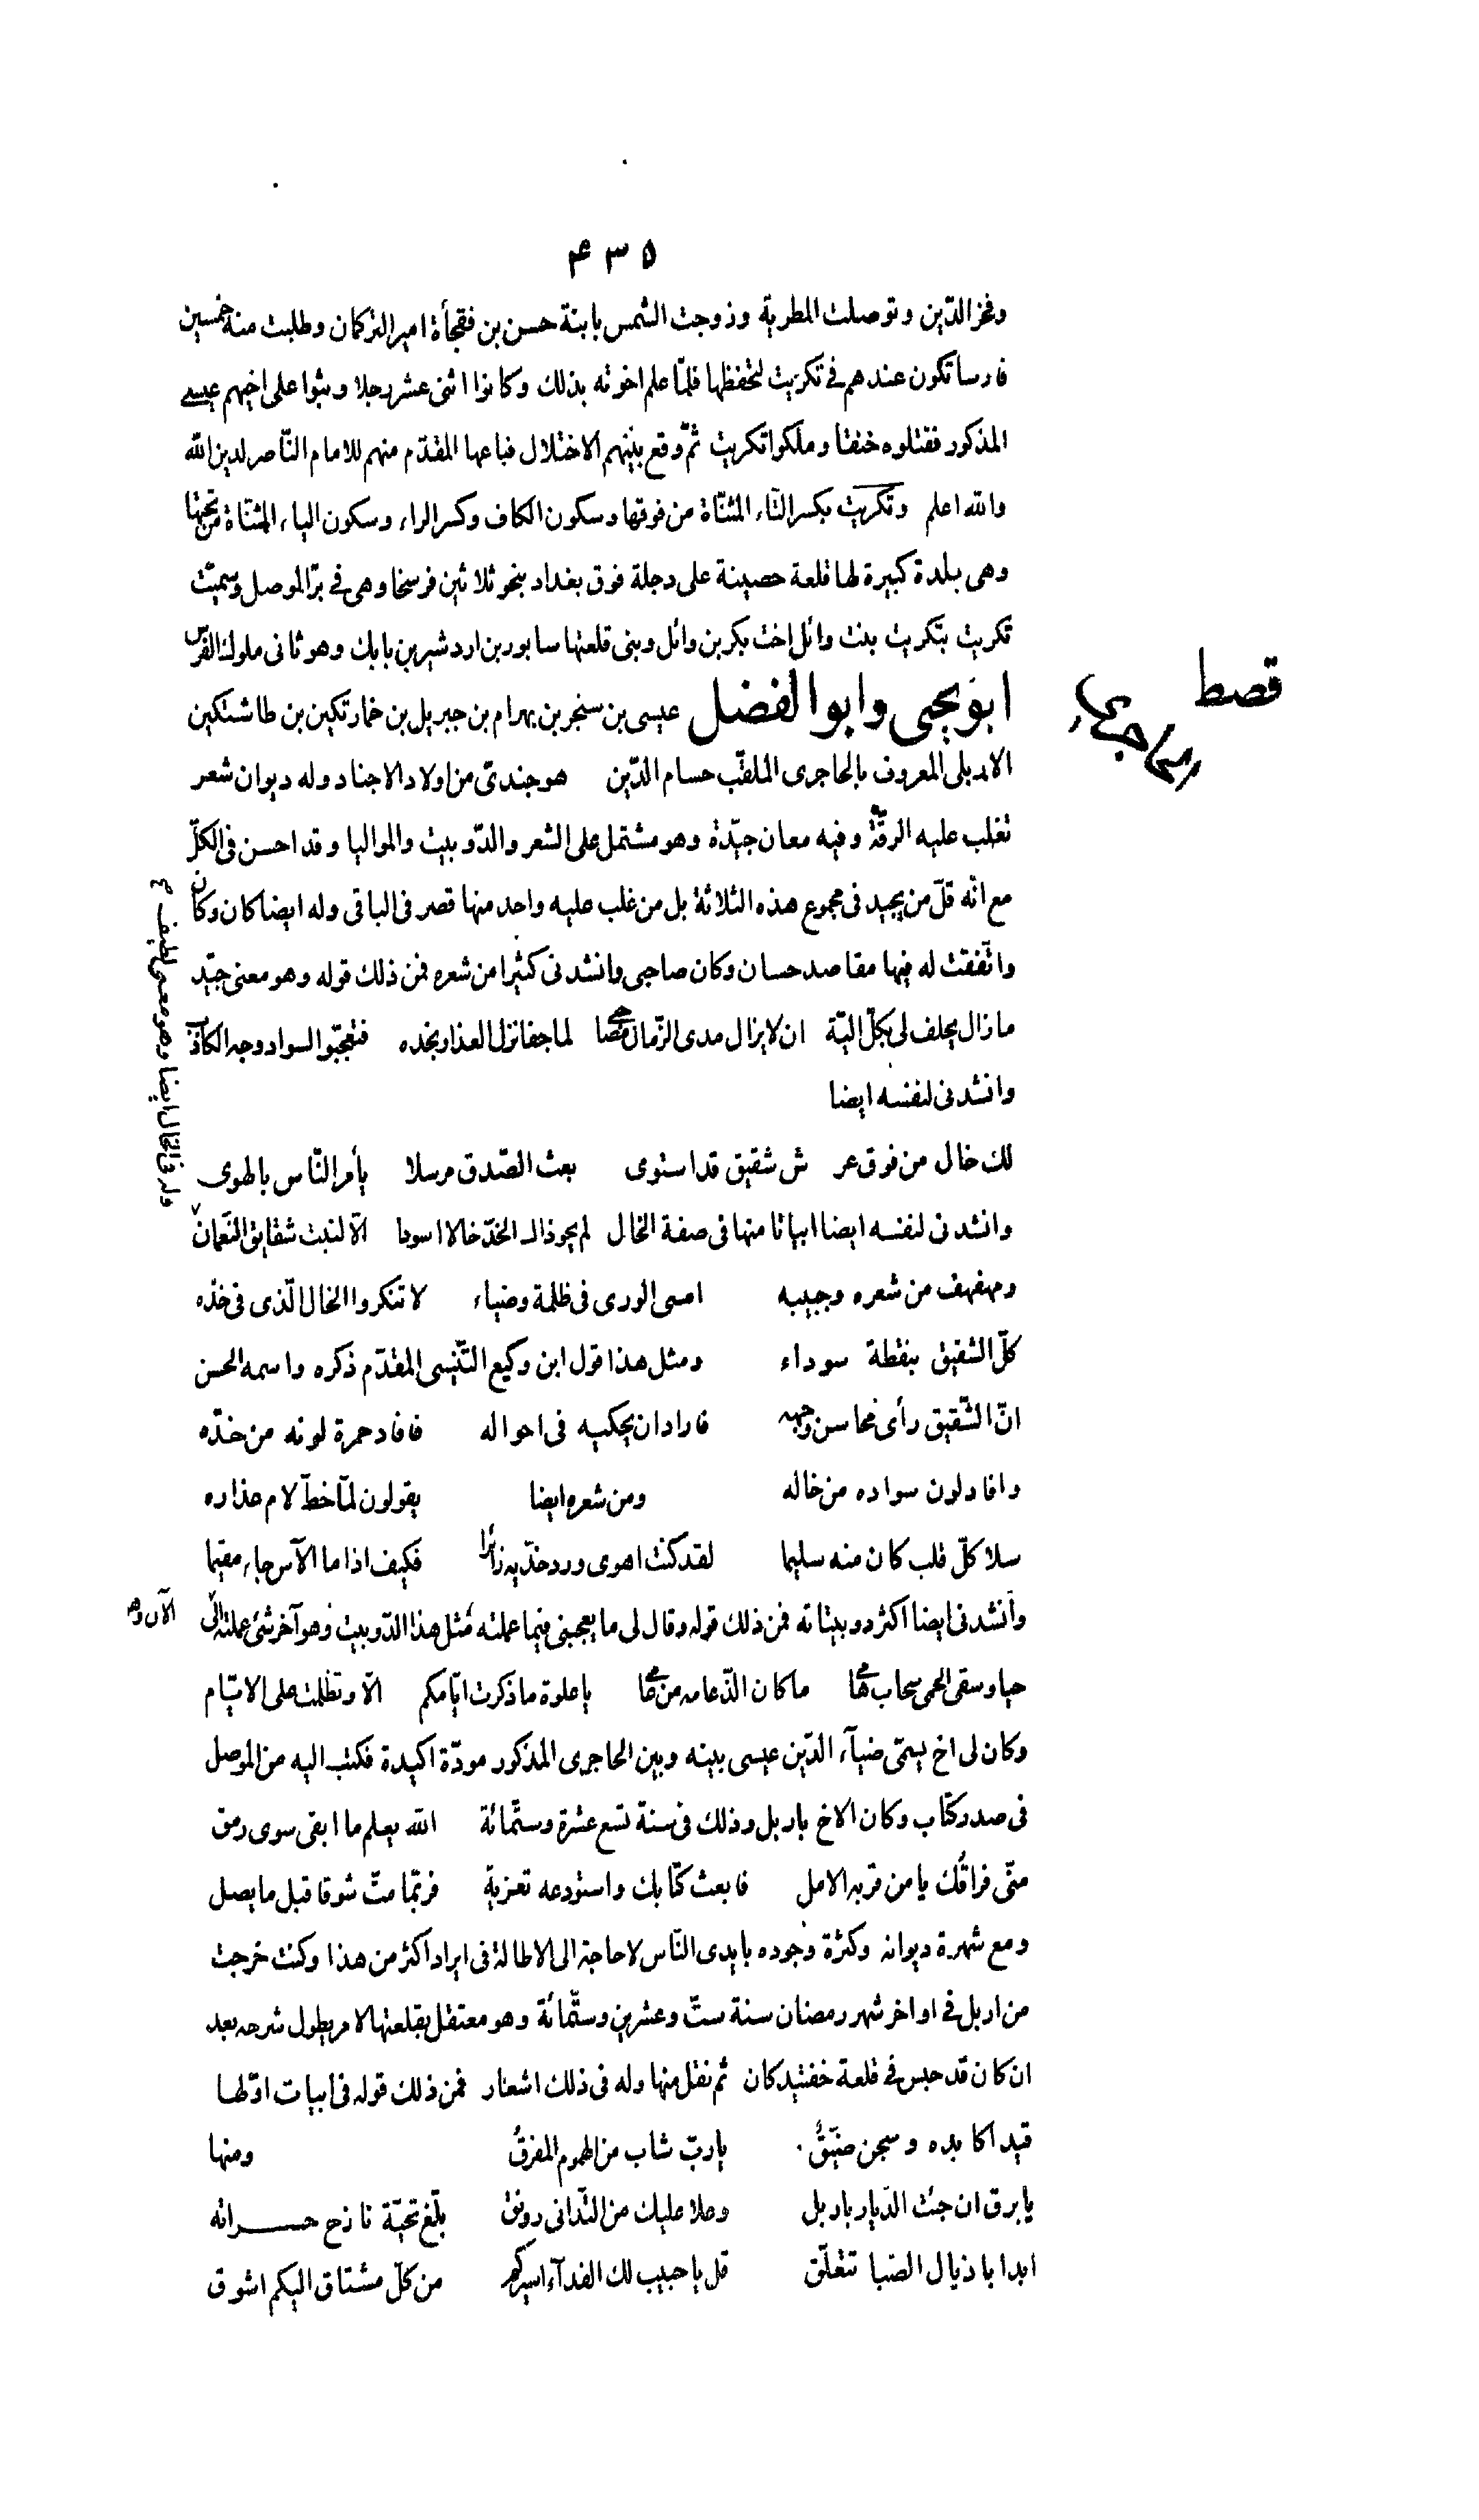 ۴۳۵
وفخر الدّين وتوصلت المطربة وزوجت الشمس بابنة حسن بن قفجأة امير التركمان وطلبت منه خمسين
فارسا تكون عندهم فى تكريت لتحفظها فلمّا علم اخوته بذلك وكانوا اثنى عشر رجلا وثبوا على اخيهم عيسى
المذكور فقتلوه خنقا وملكوا تكريت ثمّ وقع بينهم الاختلال فباعها المقدّم منهم للامام النّاصر لدين الله
والله اعلم وتكريت بكسر التّاء المثنّاة من فوقها وسكون الكاف وكسر الراء وسكون الياء المثنّاة من تحتها
وهى بلدة كبيرة لها قلعة حصينة على دجلة فوق بغداد بنحو ثلاثين فرسخا وهى فى برّ الموصل وسمّيت
تكريت بتكريت بنت وائل اخت بكر بن وائل وبنى قلعتها سابور بن اردشير بن بابك وهو ثانى ملوك الفرس
قصط
الحاجرى
ابو يحيى وابو الفضل عيسى بن سنجر بن بهرام بن جبريل بن خمارتكين بن طاشتكين
الاربلى المعروف بالحاجرى الملقّب حسام الدّين هو جندىّ من اولاد الاجناد وله ديوان شعر
تغلب عليه الرقّة وفيه معان جيّدة وهو مشتمل على الشعر والدّوبيت والمواليا وقد احسن فى الكلّ
مع انّه قلّ من يجيد فى مجموع هذه الثلاثة بل من غلب عليه واحد منها قصر فى الباقى وله ايضا كان وكان
واتّفقت له فيها مقاصد حسان وكان صاحبى وانشدنى كثيرا من شعره فمن ذلك قوله وهو معنى جيّد
ما زال يحلف لى بكلّ اليّة ان لا يزال مدى الزّمان مصاحبى لما جفا نزل العذار بخده فتعجّبوا لسواد وجه الكاذب
وانشدنى لنفسه ايضا
لك خال من فوق عر ش شقيق قد استوى بعث الصّدق مرسلا يأمر النّاس بالهوى
وله فى الخال ايضا وهو معنى لطيف
وانشدنى لنفسه ايضا ابياتا منها فى صفة الخال لم يحو ذاك الخدّ خالا اسودا الّا لنبت شقايق النّعمان
ومهفهف من شعره وجبينه امسى الورى فى ظلمة وضياء لا تنكروا الخال الّذى فى خدّه
كلّ الشقيق بنقطة سوداء ومثل هذا قول ابن وكيع التّنّيسى المقدّم ذكره واسمه الحسن
انّ الشّقيق رأى محاسن وجهه فاراد ان يحكيه فى احواله فافاد حمرة لونه من خدّه
وافاد لون سواده من خاله ومن شعره ايضا يقولون لمّا خطّ لام عذاره
سلا كلّ قلب كان منه سليما لقد كنت اهوى ورد خدّيه زائرا فكيف اذا ما الآس جاء مقيما
وانشدنى ايضا اكثر دوبيتاته فمن ذلك قوله وقال لى ما يعجبنى فيما عملته مثل هذا الدّوبيت وهو آخر شئ عملته الى الآن وهو
حيا وسقى الحمى سحاب هامى ما كان الذّ عامه من عامى يا علوة ما ذكرت ايّامكم الّا وتظلّمت على الايّام
وكان لى اخ يسمّى ضيآء الدّين عيسى بينه وبين الحاجرى المذكور مودّة اكيدة فكتب اليه من الموصل
فى صدر كتاب وكان الاخ باربل وذلك فى سنة تسع عشرة وستّمائة الله يعلم ما ابقى سوى رمق
منّى فراقك يا من قربه الامل فابعث كتابك واستودعه تعزية فربّما متّ شوقا قبل ما يصل
ومع شهرة ديوانه وكثرة وجوده بايدى النّاس لا حاجة الى الاطالة فى ايراد اكثر من هذا وكنت خرجت
من اربل فى اواخر شهر رمضان سنة ستّ وعشرين وستّمائة وهو معتقل بقلعتها لامر يطول شرحه بعد
ان كان قد حبس فى قلعة خفتيد كان ثم نقل منها وله فى ذلك اشعار فمن ذلك قوله فى ابيات اوّلها
قيد اكابده وسجن ضيّق يا ربّ شاب من الهموم المفرق ومنها
يا برق ان جئت الدّيار باربل وعلا عليك من التّدانى رونق بلّغ تحيّة نازح حسراته
ابدا باذيال الصّبا تتعلّق قل يا حبيب لك الفدآء اسيركم من كلّ مشتاق اليكم اشوق